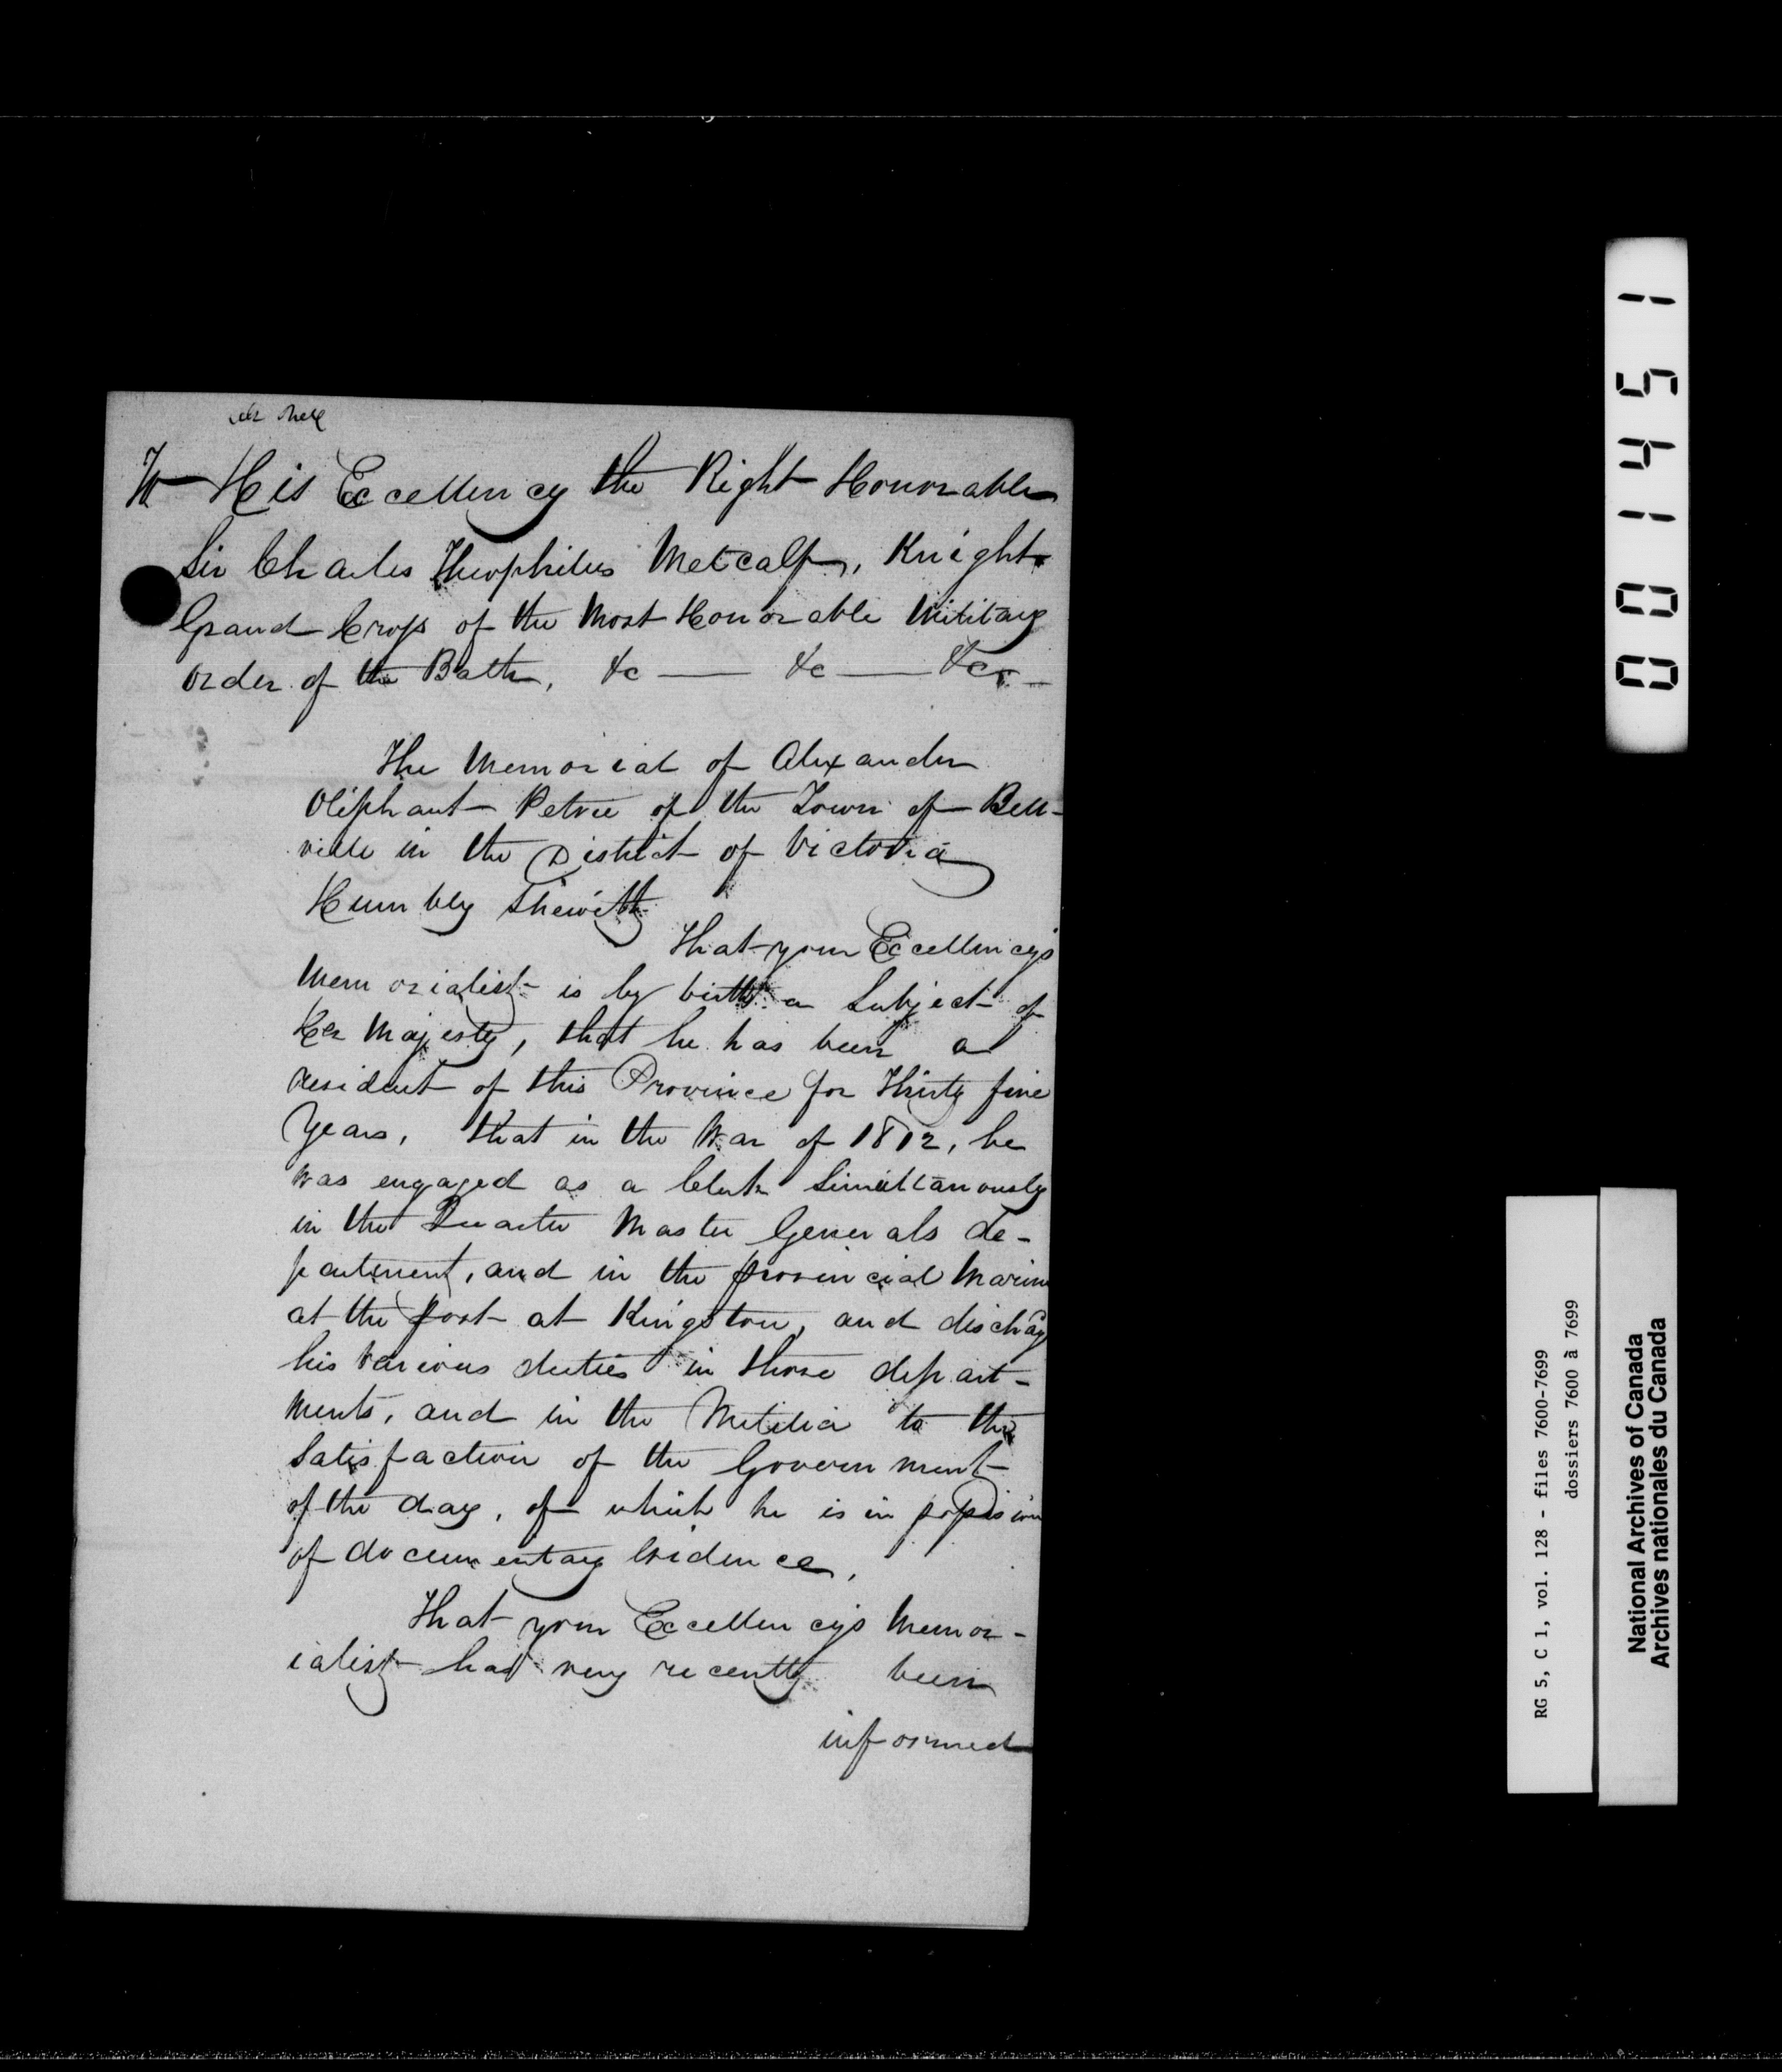 To His Excellency the Right Honorable
Sir Charles Theophilus Metcalfe, Knight
Grand Cross of the Most Honorable Military
Order of the Bath, &c — &c — &c —
The Memorial of Alexander
Oliphant Petrie of the Town of Bell-
ville in the District of Victoria
Humbly Sheweth
That your Excellencys
Memorialist is by birth a Subject of
Her Majesty, that he has been a
resident of this Province for Thirty five
Years, that in the War of 1812, he
was engaged as a Clerk Simultanously
in the Quarter Master Generals de-
partment, and in the provincial Marine
at the post at Kingston, and dischag
his various duties in those depart-
ments, and in the Militia to the
Satisfaction of the Government
of the day, of which he is in possession
of documentary Evidence,
That your Excellencys Memor-
ialist has very recently been
informed
001451
RG 5, C 1, vol. 128 - files 7600-7699
dossiers 7600 à 7699
National Archives of Canada
Archives nationales du Canada